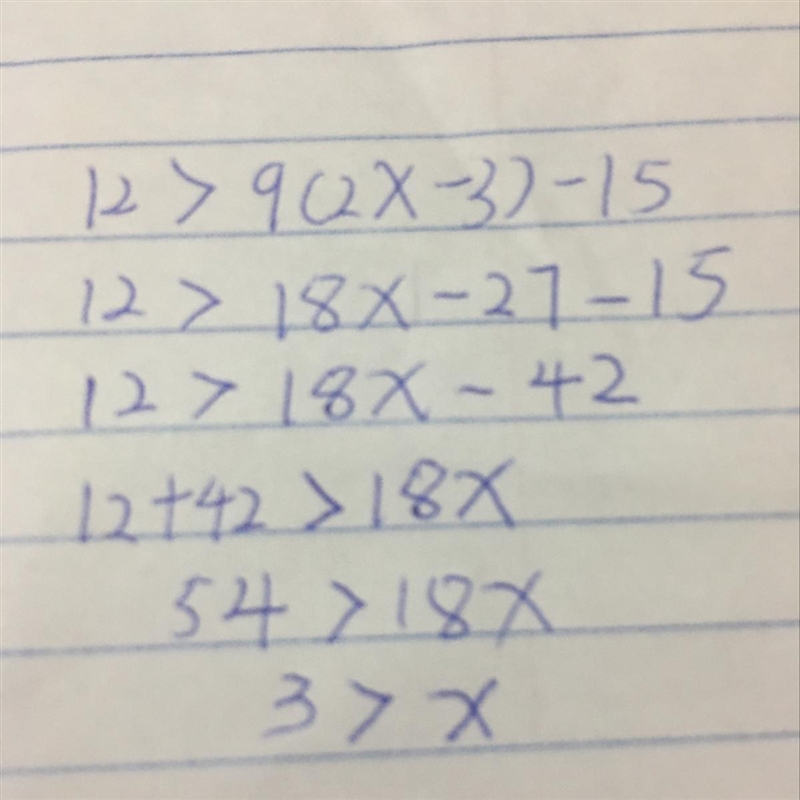 12 > 9(2x-3)-15
12 > 18x-27-15
12 > 18x-42
12+42 > 18x
54 > 18x
3 > x